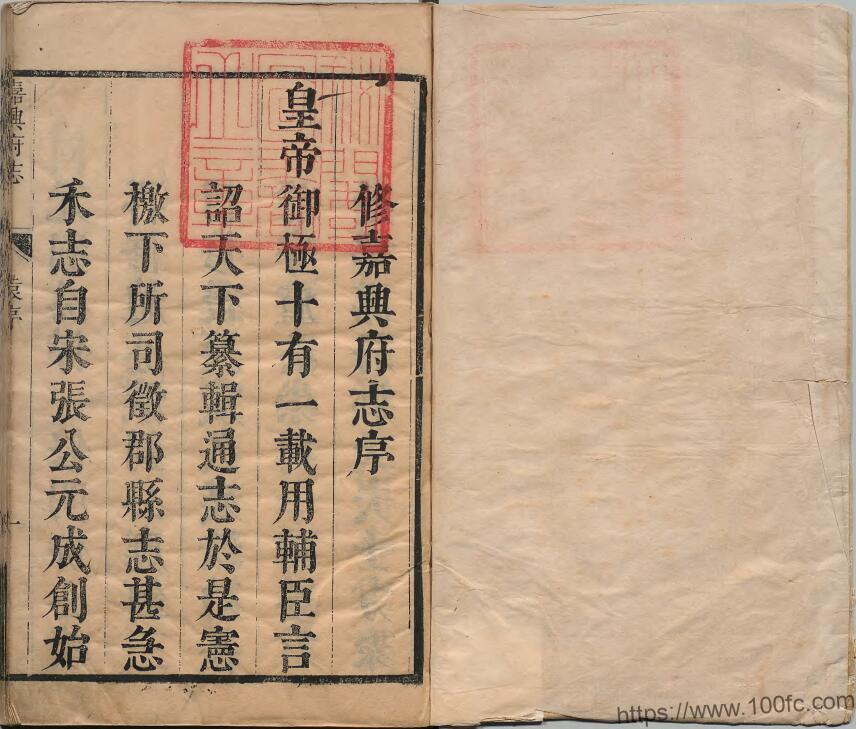 修嘉興府志序
皇帝御極十有一載用輔臣言
詔天下纂輯通志於是憲
檄下所司徵郡縣志甚急
禾志自宋張公元成創始
嘉興府志
袁序
一
https://www.100fc.com